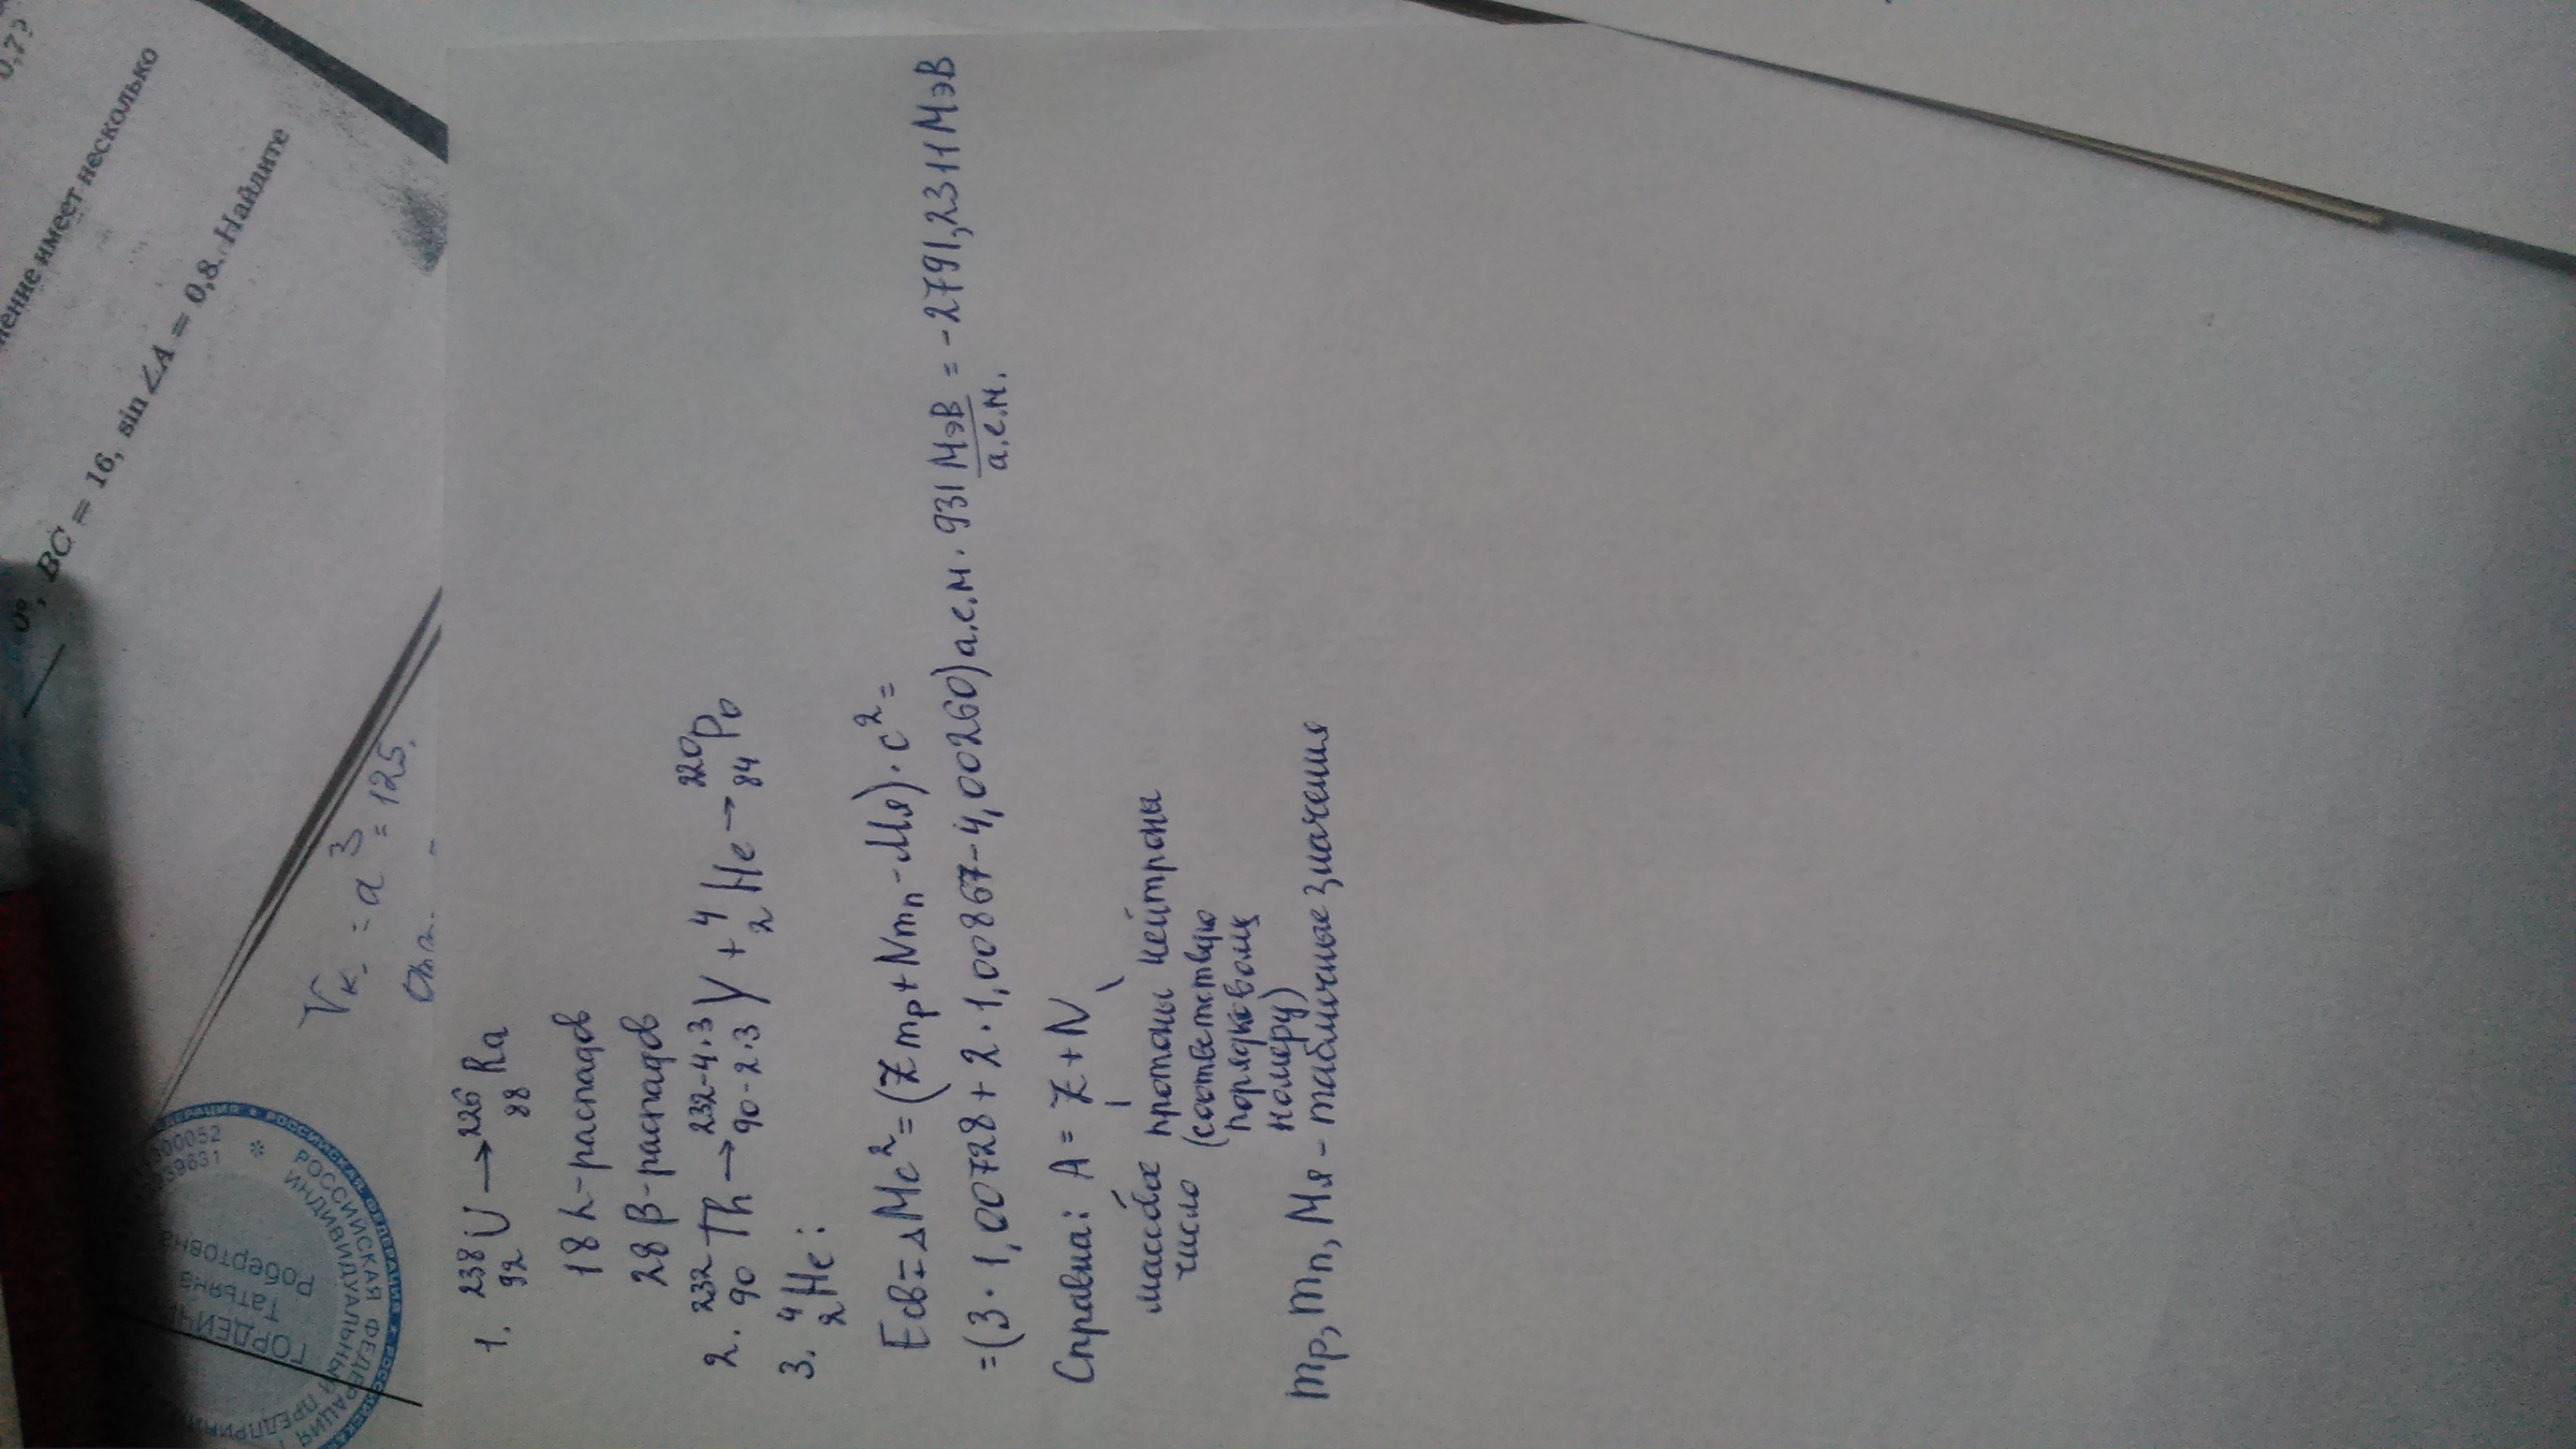 0,73
имеет несколько
, BC = 16, sin ∠A = 0,8. Найдите
Vк. = a³ = 125.
РОССИЙСКАЯ ФЕДЕРАЦИЯ
ИНДИВИДУАЛЬНЫЙ
Татьяна
Робертовна
1. ²³⁸₉₂U → ²²⁶₈₈Ra
18 α-распадов
28 β-распадов
2. ²³²₉₀Th → ²³²⁻⁴·³₉₀₋₂.₃Y + ⁴₂He → ²²⁰₈₄Po
3. ⁴₂He:
Eсв = ΔMc² = (Zmp + Nmn - Mя)·c² =
= (3·1,00728 + 2·1,00867 - 4,00260) а.е.м. · 931 МэВ/а.е.м. = -2791,2311 МэВ
Справка: A = Z + N
массовое число
протоны (соответствую порядковому номеру)
нейтроны
mp, mn, Mя - табличные значения